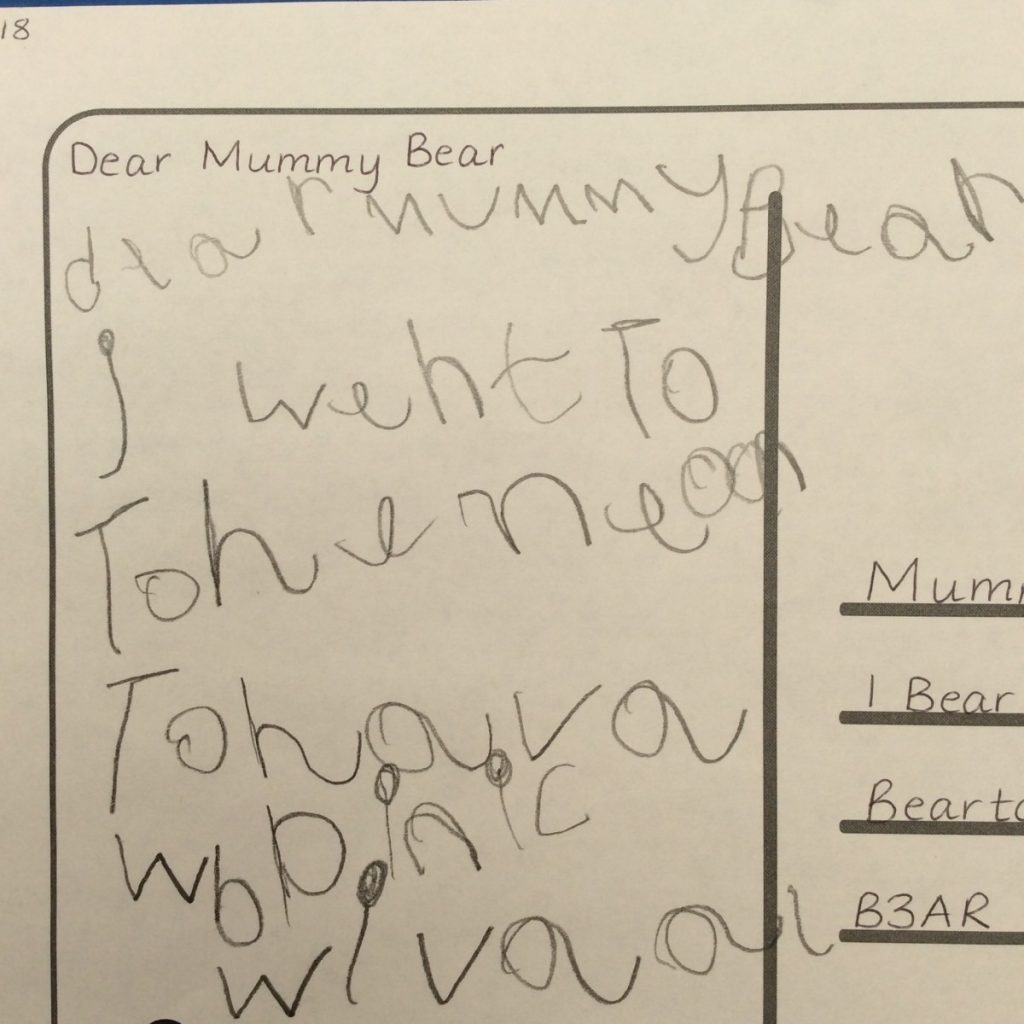 18
Dear Mummy Bear
dear mummy Bear
I went To
To he moon
To hava
picnic
wiv a
Mum
1 Bear
Bearto
B3AR